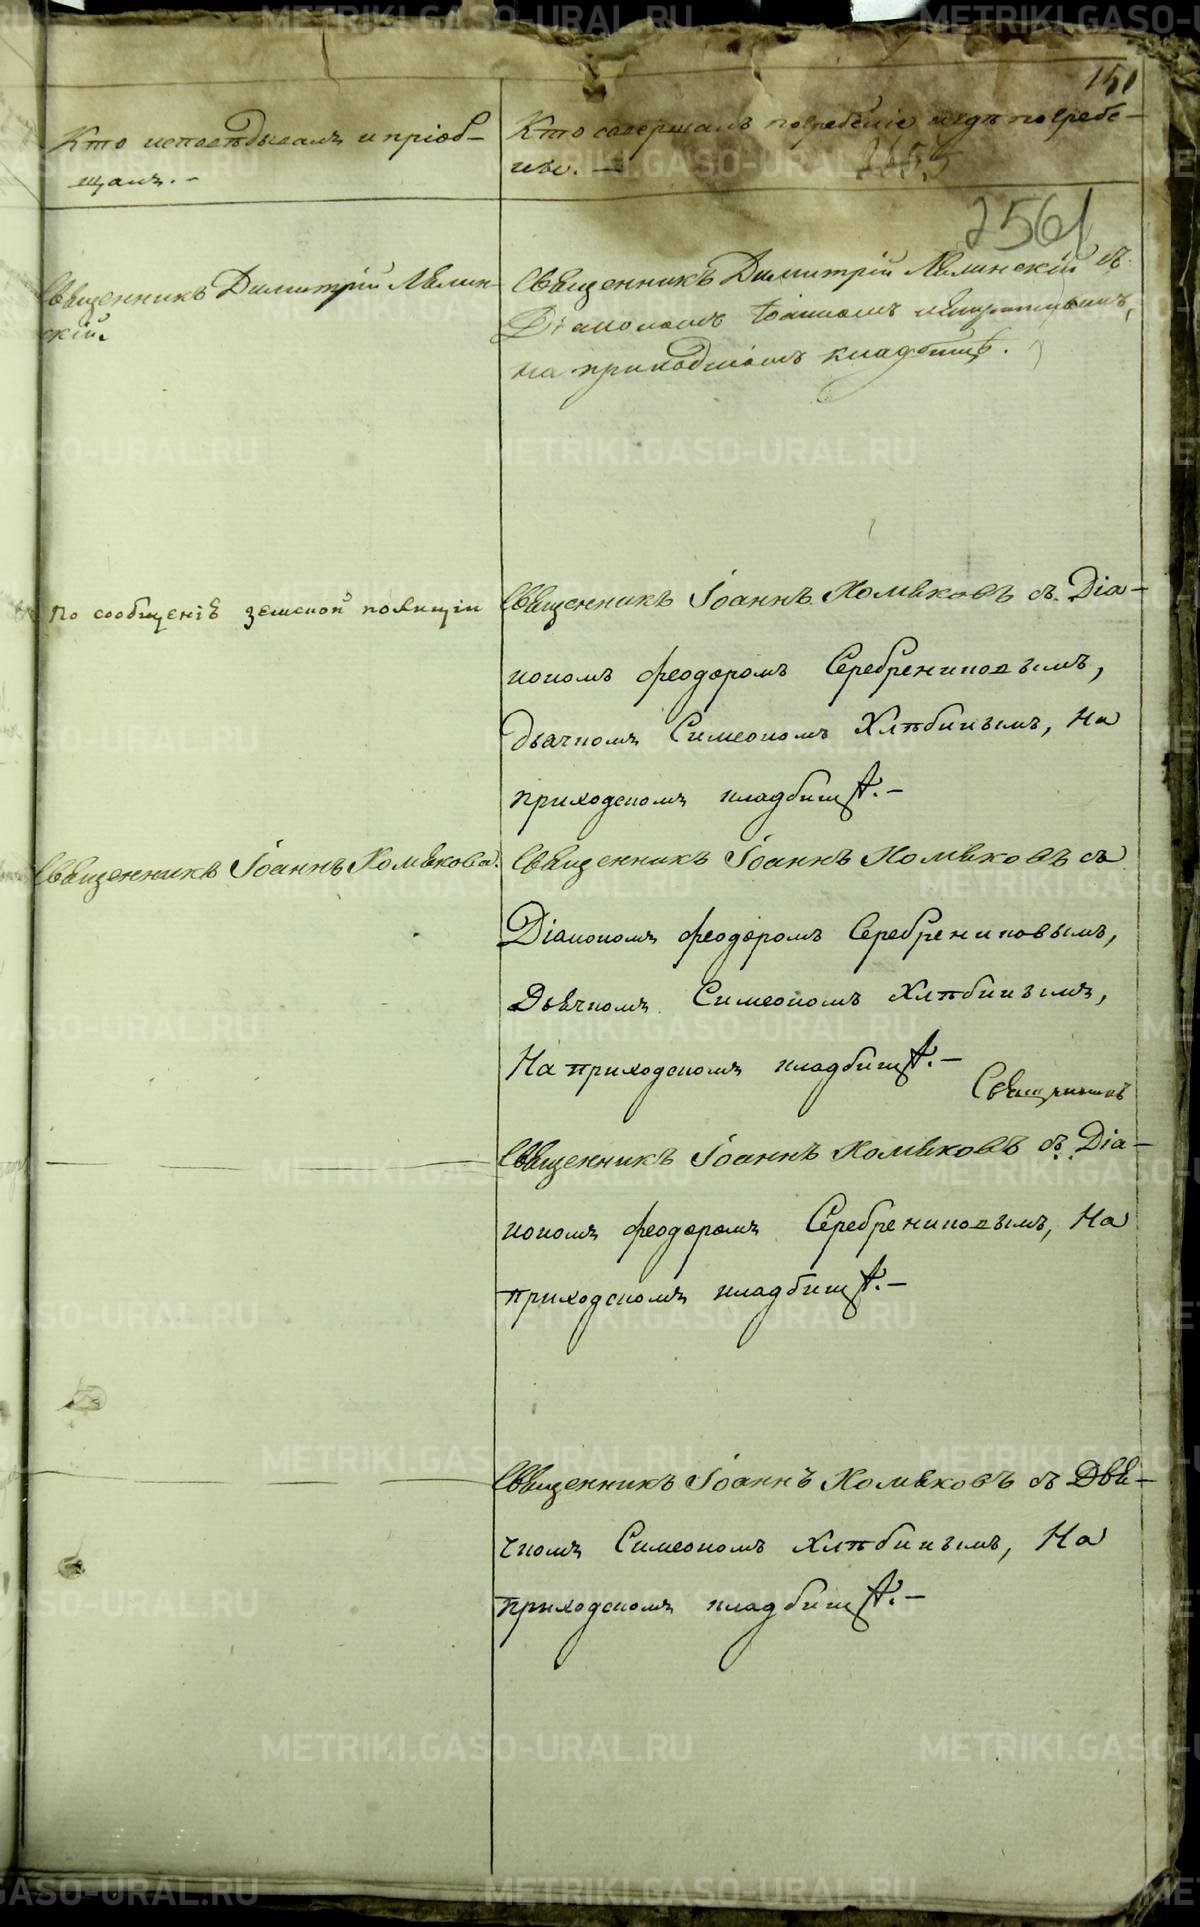 151
Кто исповѣдывалъ и пріоб-
щалъ. -
Кто совершалъ погребеніе и гдѣ погребе-
ны. -
2561
Священникъ Димитрій Лялин-
скій.
Священникъ Димитрій Лялинскій съ
Діакономъ Іоанномъ
на приходскомъ кладбищѣ.
По сообщеніѣ земской полиціи
Священникъ Іоаннъ Хомяковъ съ Діа-
кономъ Феодоромъ Серебрениковымъ,
дьячкомъ Симеономъ Хлѣбинымъ, На
приходскомъ кладбищѣ. -
Священникъ Іоаннъ Хомяковъ.
Священникъ Іоаннъ Хомяковъ съ
Діакономъ Феодоромъ Серебрениковымъ,
Дьячкомъ Симеономъ Хлѣбинымъ,
На приходскомъ кладбищѣ. -
Священникъ
Священникъ Іоаннъ Хомяковъ съ Діа-
кономъ Феодоромъ Серебрениковымъ, На
приходскомъ кладбищѣ. -
Священникъ Іоаннъ Хомяковъ съ Дья-
чкомъ Симеономъ Хлѣбинымъ, На
приходскомъ кладбищѣ. -
METRIKI.GASO-URAL.RU